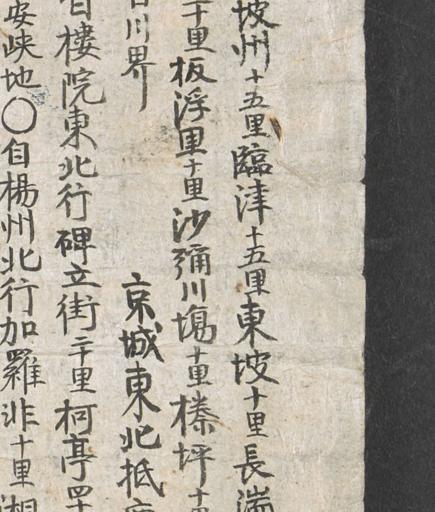 坡州十五里臨津十五里東坡十里長湍
十里板浮里十里沙彌川塲十里榛坪十
川界
京城東北抵
自樓院東北行碑立街二十里柯亭四十
安峽地○自楊州北行加羅非十里湘